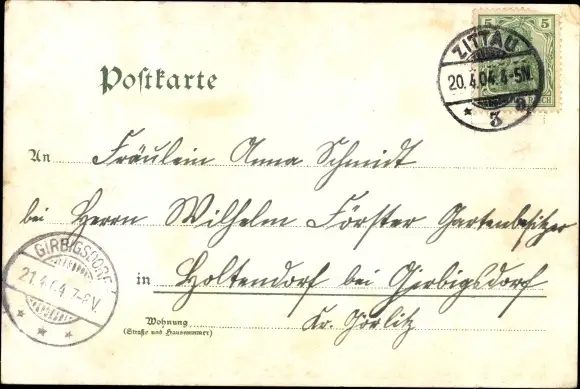 5 5
ZITTAU
20.4.04. 4-5N.
* 3 a
REICH
Postkarte
An Fräulein Anna Schmidt
bei Herrn Wilhelm Förster Gartenbesitzer
GIRBIGSDORF
21.4.04. 7-8V.
* * *
in Holtendorf bei Girbigsdorf
Kr. Görlitz
Wohnung
(Straße und Hausnummer)